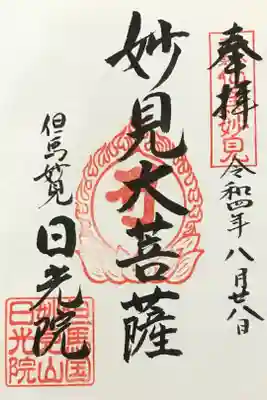 奉拝
令和四年八月廿八日
妙見大菩薩
但馬 日光院
但馬国
妙見山
日光院